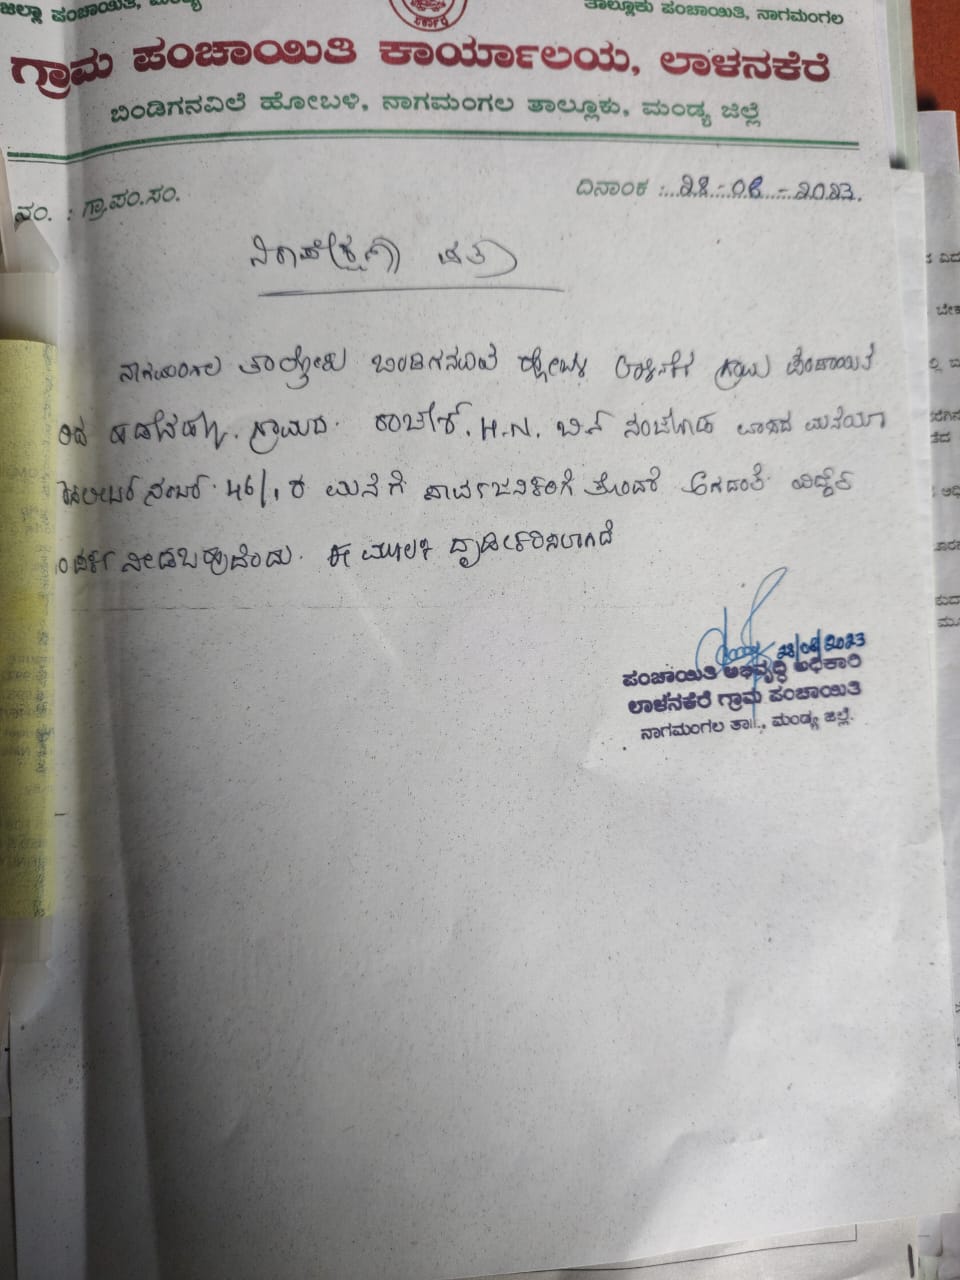 ಜಿಲ್ಲಾ ಪಂಚಾಯಿತಿ, ಮಂಡ್ಯ
ತಾಲ್ಲೂಕು ಪಂಚಾಯಿತಿ, ನಾಗಮಂಗಲ
ಗ್ರಾಮ ಪಂಚಾಯಿತಿ ಕಾರ್ಯಾಲಯ, ಲಾಳನಕೆರೆ
ಬಿಂಡಿಗನವಿಲೆ ಹೋಬಳಿ, ನಾಗಮಂಗಲ ತಾಲ್ಲೂಕು, ಮಂಡ್ಯ ಜಿಲ್ಲೆ
ನಂ. : ಗ್ರಾ.ಪಂ.ಸಂ.
ದಿನಾಂಕ : 28-08-2023.
ನಿರಾಪೇಕ್ಷಣಾ ಪತ್ರ
ನಾಗಮಂಗಲ ತಾಲ್ಲೋಕು ಬಿಂಡಿಗನವಿಲೆ ಹೋಬಳಿ ಲಾಳನಕೆರೆ ಗ್ರಾಮ ಪಂಚಾಯಿತಿ
ಗ್ರಾಮದ. H.N. ಬಿನ್ ನಂಜೇಗೌಡ ವಾಸದ ಮನೆಯಾ
ನಂಬರ್. 46/1 ರ ಮನೆಗೆ ಸಾರ್ವಜನಿಕರಿಗೆ ತೊಂದರೆ ಆಗದಂತೆ ವಿದ್ಯುತ್
ನೀಡಬಹುದೆಂದು. ಈ ಮೂಲಕ ದೃಢೀಕರಿಸಲಾಗಿದೆ
28/08/2023
ಪಂಚಾಯಿತಿ ಅಭಿವೃದ್ಧಿ ಅಧಿಕಾರಿ
ಲಾಳನಕೆರೆ ಗ್ರಾಮ ಪಂಚಾಯಿತಿ
ನಾಗಮಂಗಲ ತಾ||., ಮಂಡ್ಯ ಜಿಲ್ಲೆ.